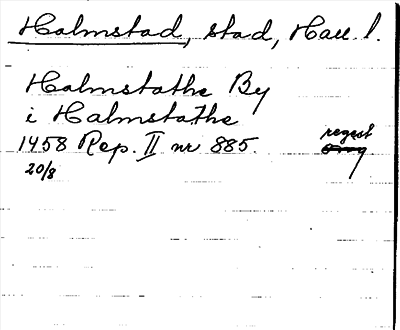 Halmstad, stad, Hall l.
Halmstathe By
i Halmstathe
1458 Rep. II nr 885. regest
20/8